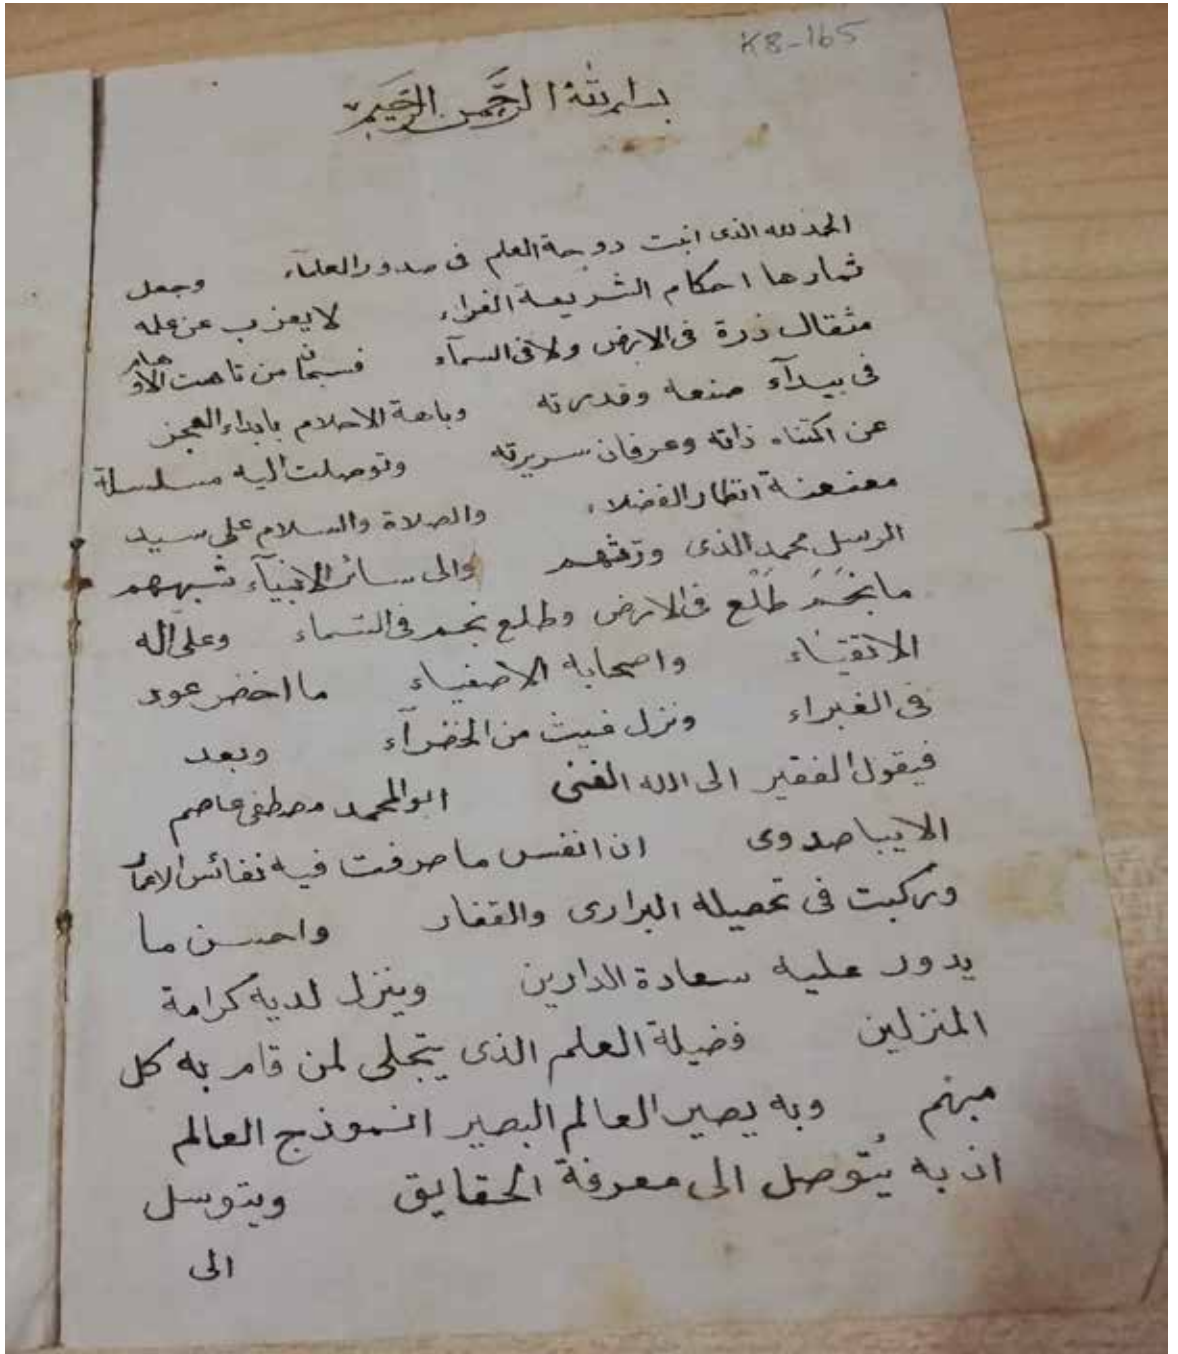 K8-165
بسم الله الرَّحمن الرَّحيم
الحمد لله الذى انبت دوحة العلم فى صدور العلمآء وجعل
ثمارها احكام الشريعة الغراء لا يعزب عن علمه
مثقال ذرة فى الارض ولا فى السمآء فسبحان من تاهت الاوهام
فى بيدآء صنعه وقدرته وباهة الاحلام بابداء العجز
عن اكتناه ذاته وعرفان سريرته وتوصلت اليه سلسلة
معنعنة انظار الفضلاء والصلاة والسلام على سيد
الرسل محمد الذى والى سائر الانبيآء شبههم
ما نَجَمَ طَلْع فى الارض وطلع نجم فى السماء وعلى آله
الاتقياء واصحابه الاصفياء ما اخضر عود
فى الغبراء ونزل غيث من الخضرآء وبعد
فيقول الفقير الى الله الغنى ابو المحمد مصطفى عاصم
الايباصدوى ان انفس ما صرفت فيه نفائس الاعمار
وركبت فى تحصيله البرارى والقفار واحسن ما
يدور عليه سعادة الدارين وينزل لديه كرامة
المنزلين فضيلة العلم الذى يتجلى لمن قام به كل
مبهم وبه يصير العالم البصير انموذج العالم
اذ به يُتوصل الى معرفة الحقايق ويتوسل
الى